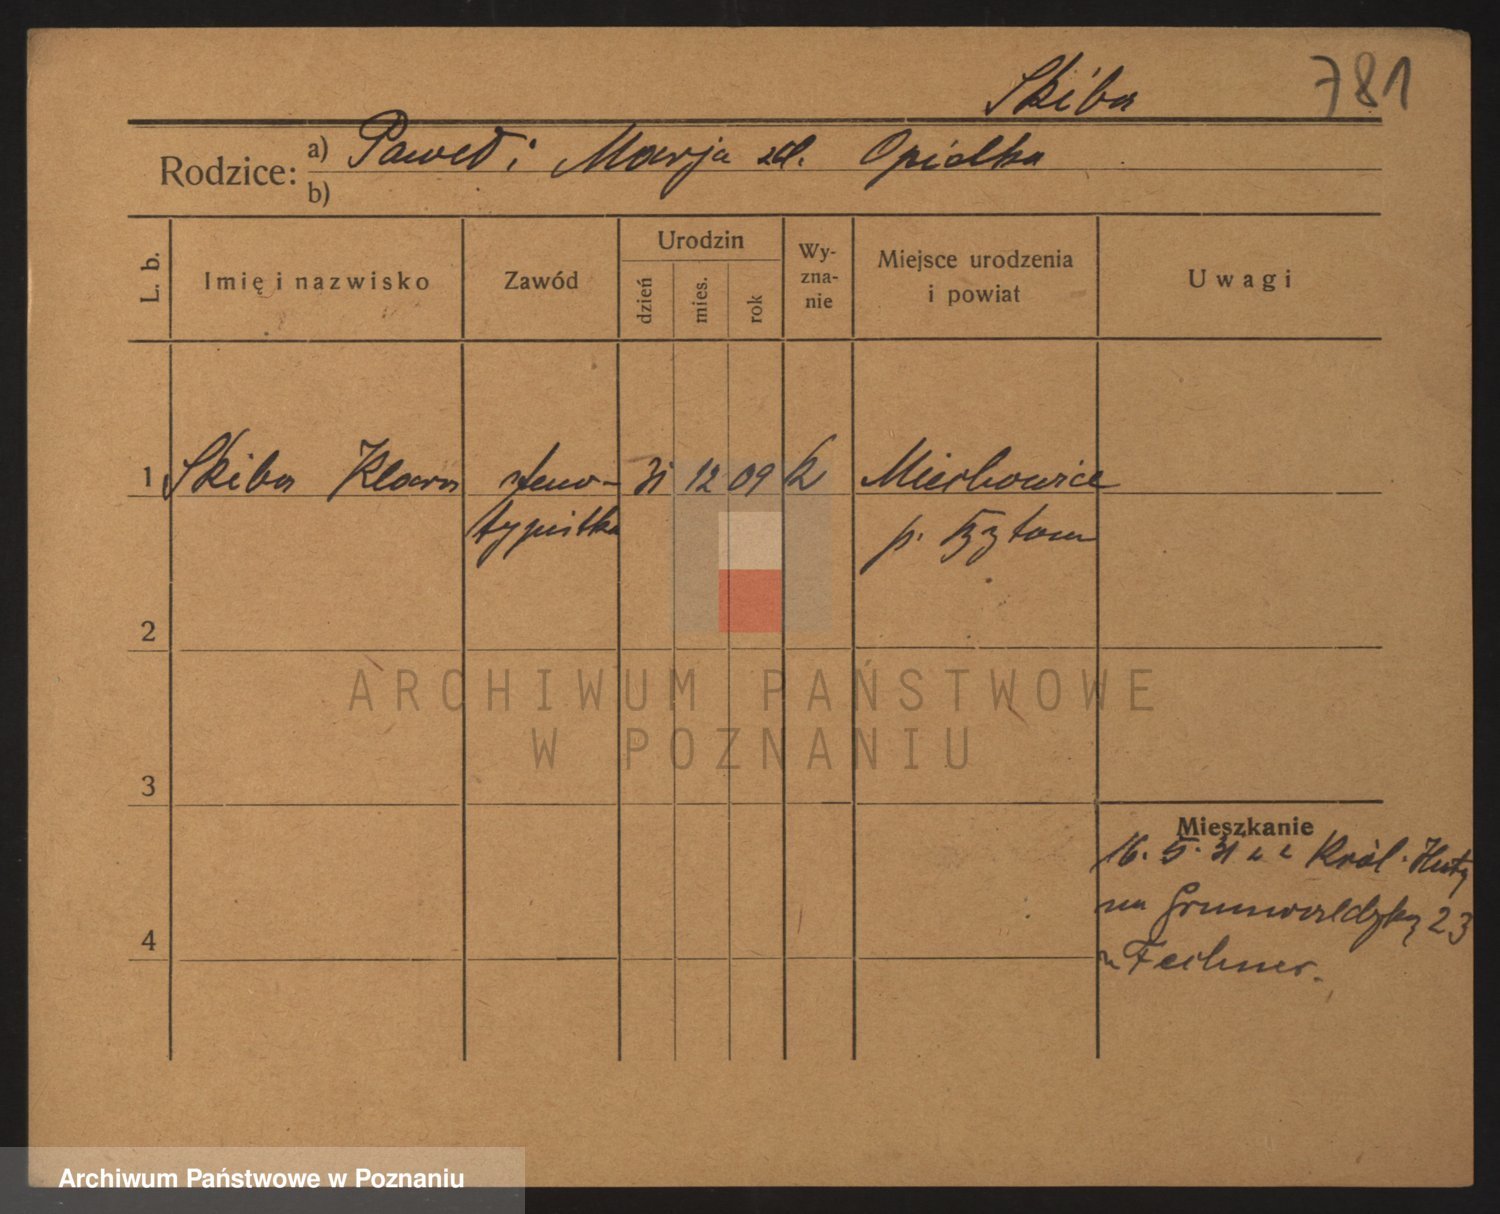 Skiba 781
Rodzice: a) Paweł i Marja zd. Opiełka
b)
L. b. Imię i nazwisko Zawód Urodzin dzień mies. rok Wy-zna-nie Miejsce urodzenia i powiat Uwagi
1 Skiba Klara steno- 31 12 09 k Miechowice
typistka p. Bytom
2
ARCHIWUM PAŃSTWOWE
W POZNANIU
3
Mieszkanie
16. 5. 31 z Król. Huty
na Grunwaldzką 23
4
u Fechner.
Archiwum Państwowe w Poznaniu